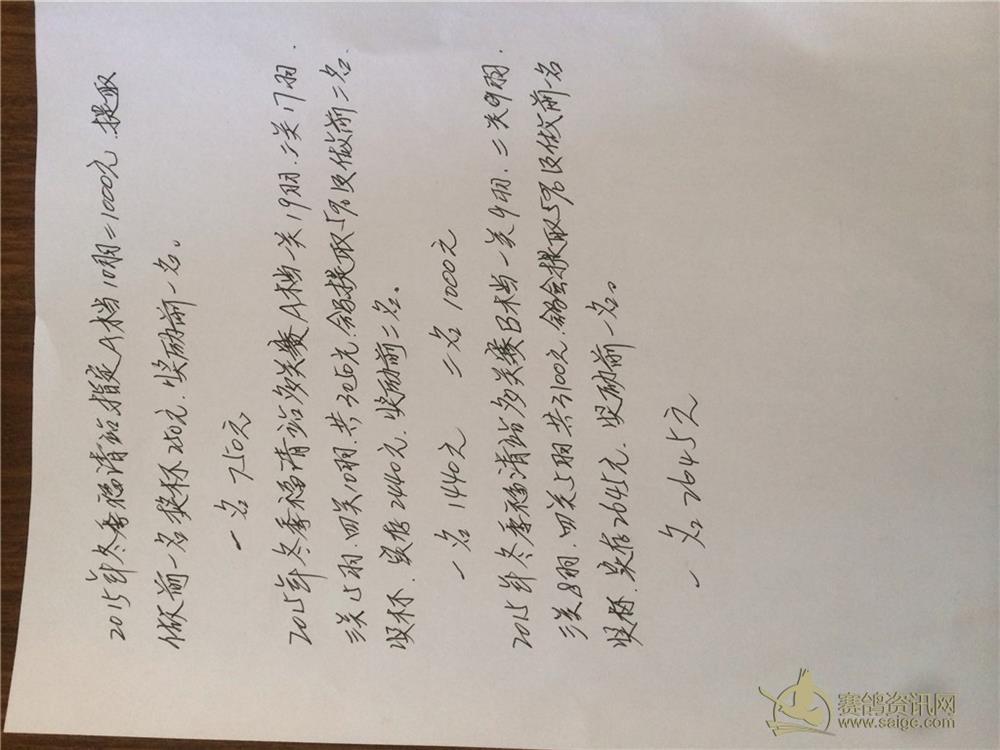 2015年冬季福清站指定A档10羽=1000元.提取
做前一名奖杯250元.奖励前一名。
一名750元
2015年冬季福清站多关赛A档一关19羽.二关17羽.
三关15羽.四关10羽.共3050元.鸽会提取5%及做前二名
奖杯.实存2440元.奖励前二名。
一名1440元 二名1000元
2015年冬季福清站多关赛B档一关9羽.二关9羽.
三关8羽.四关5羽共3100元.鸽会提取5%及做前一名
奖杯.实存2645元.奖励前一名。
一名2645元
赛鸽资讯网
www.saigc.com